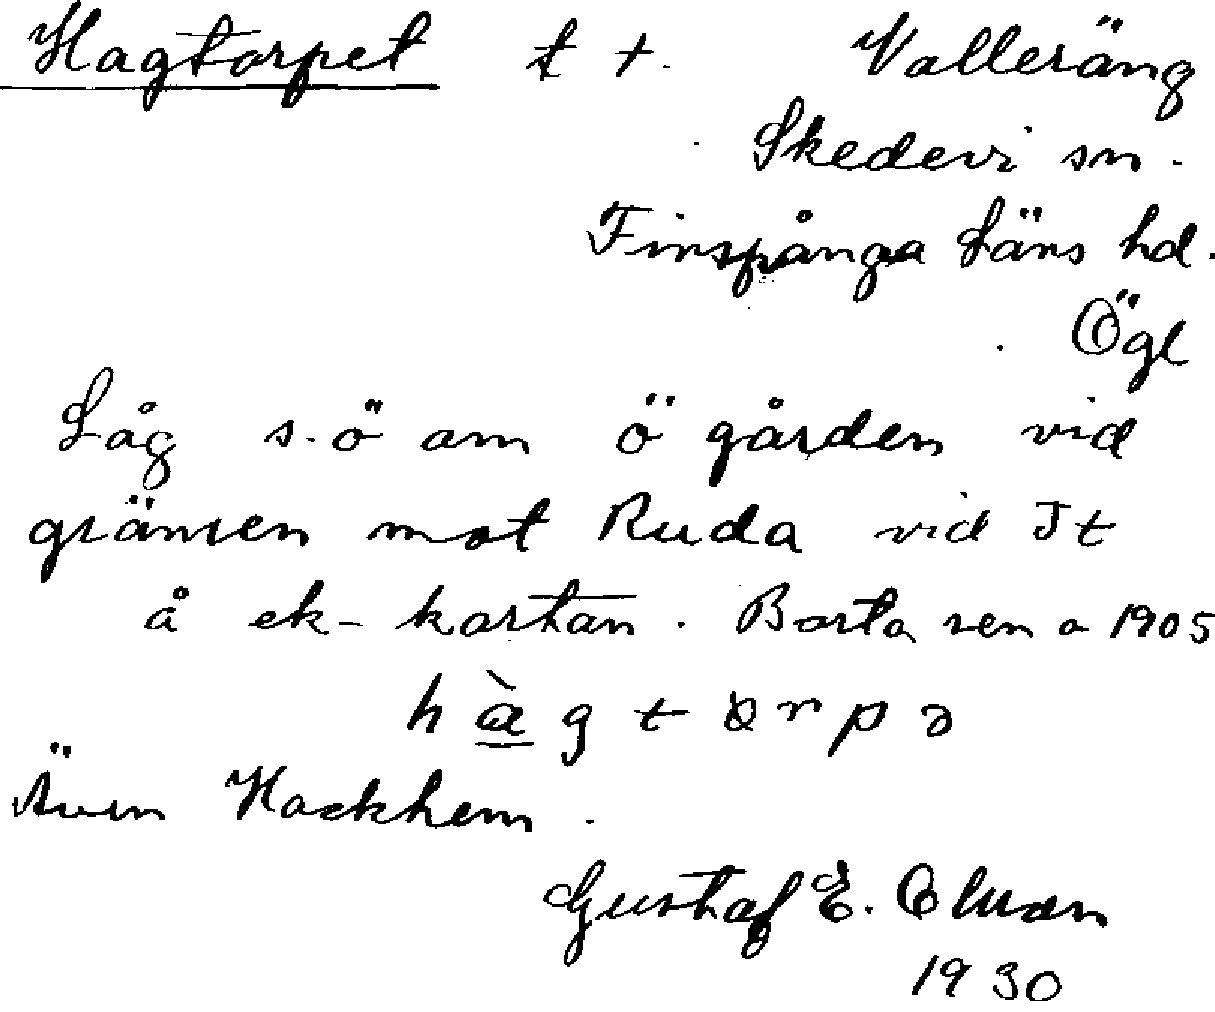 Hagtorpet t +. Valleräng
Skedevi sn.
Finspånga Läns hd.
Ögl
Låg s.ö om ö gården vid
gränsen mot Ruda vid Jt
å ek-kartan. Borta sen o 1905
h à g t ɷ r p ə
Även Hackhem.
Gustaf E.
1930